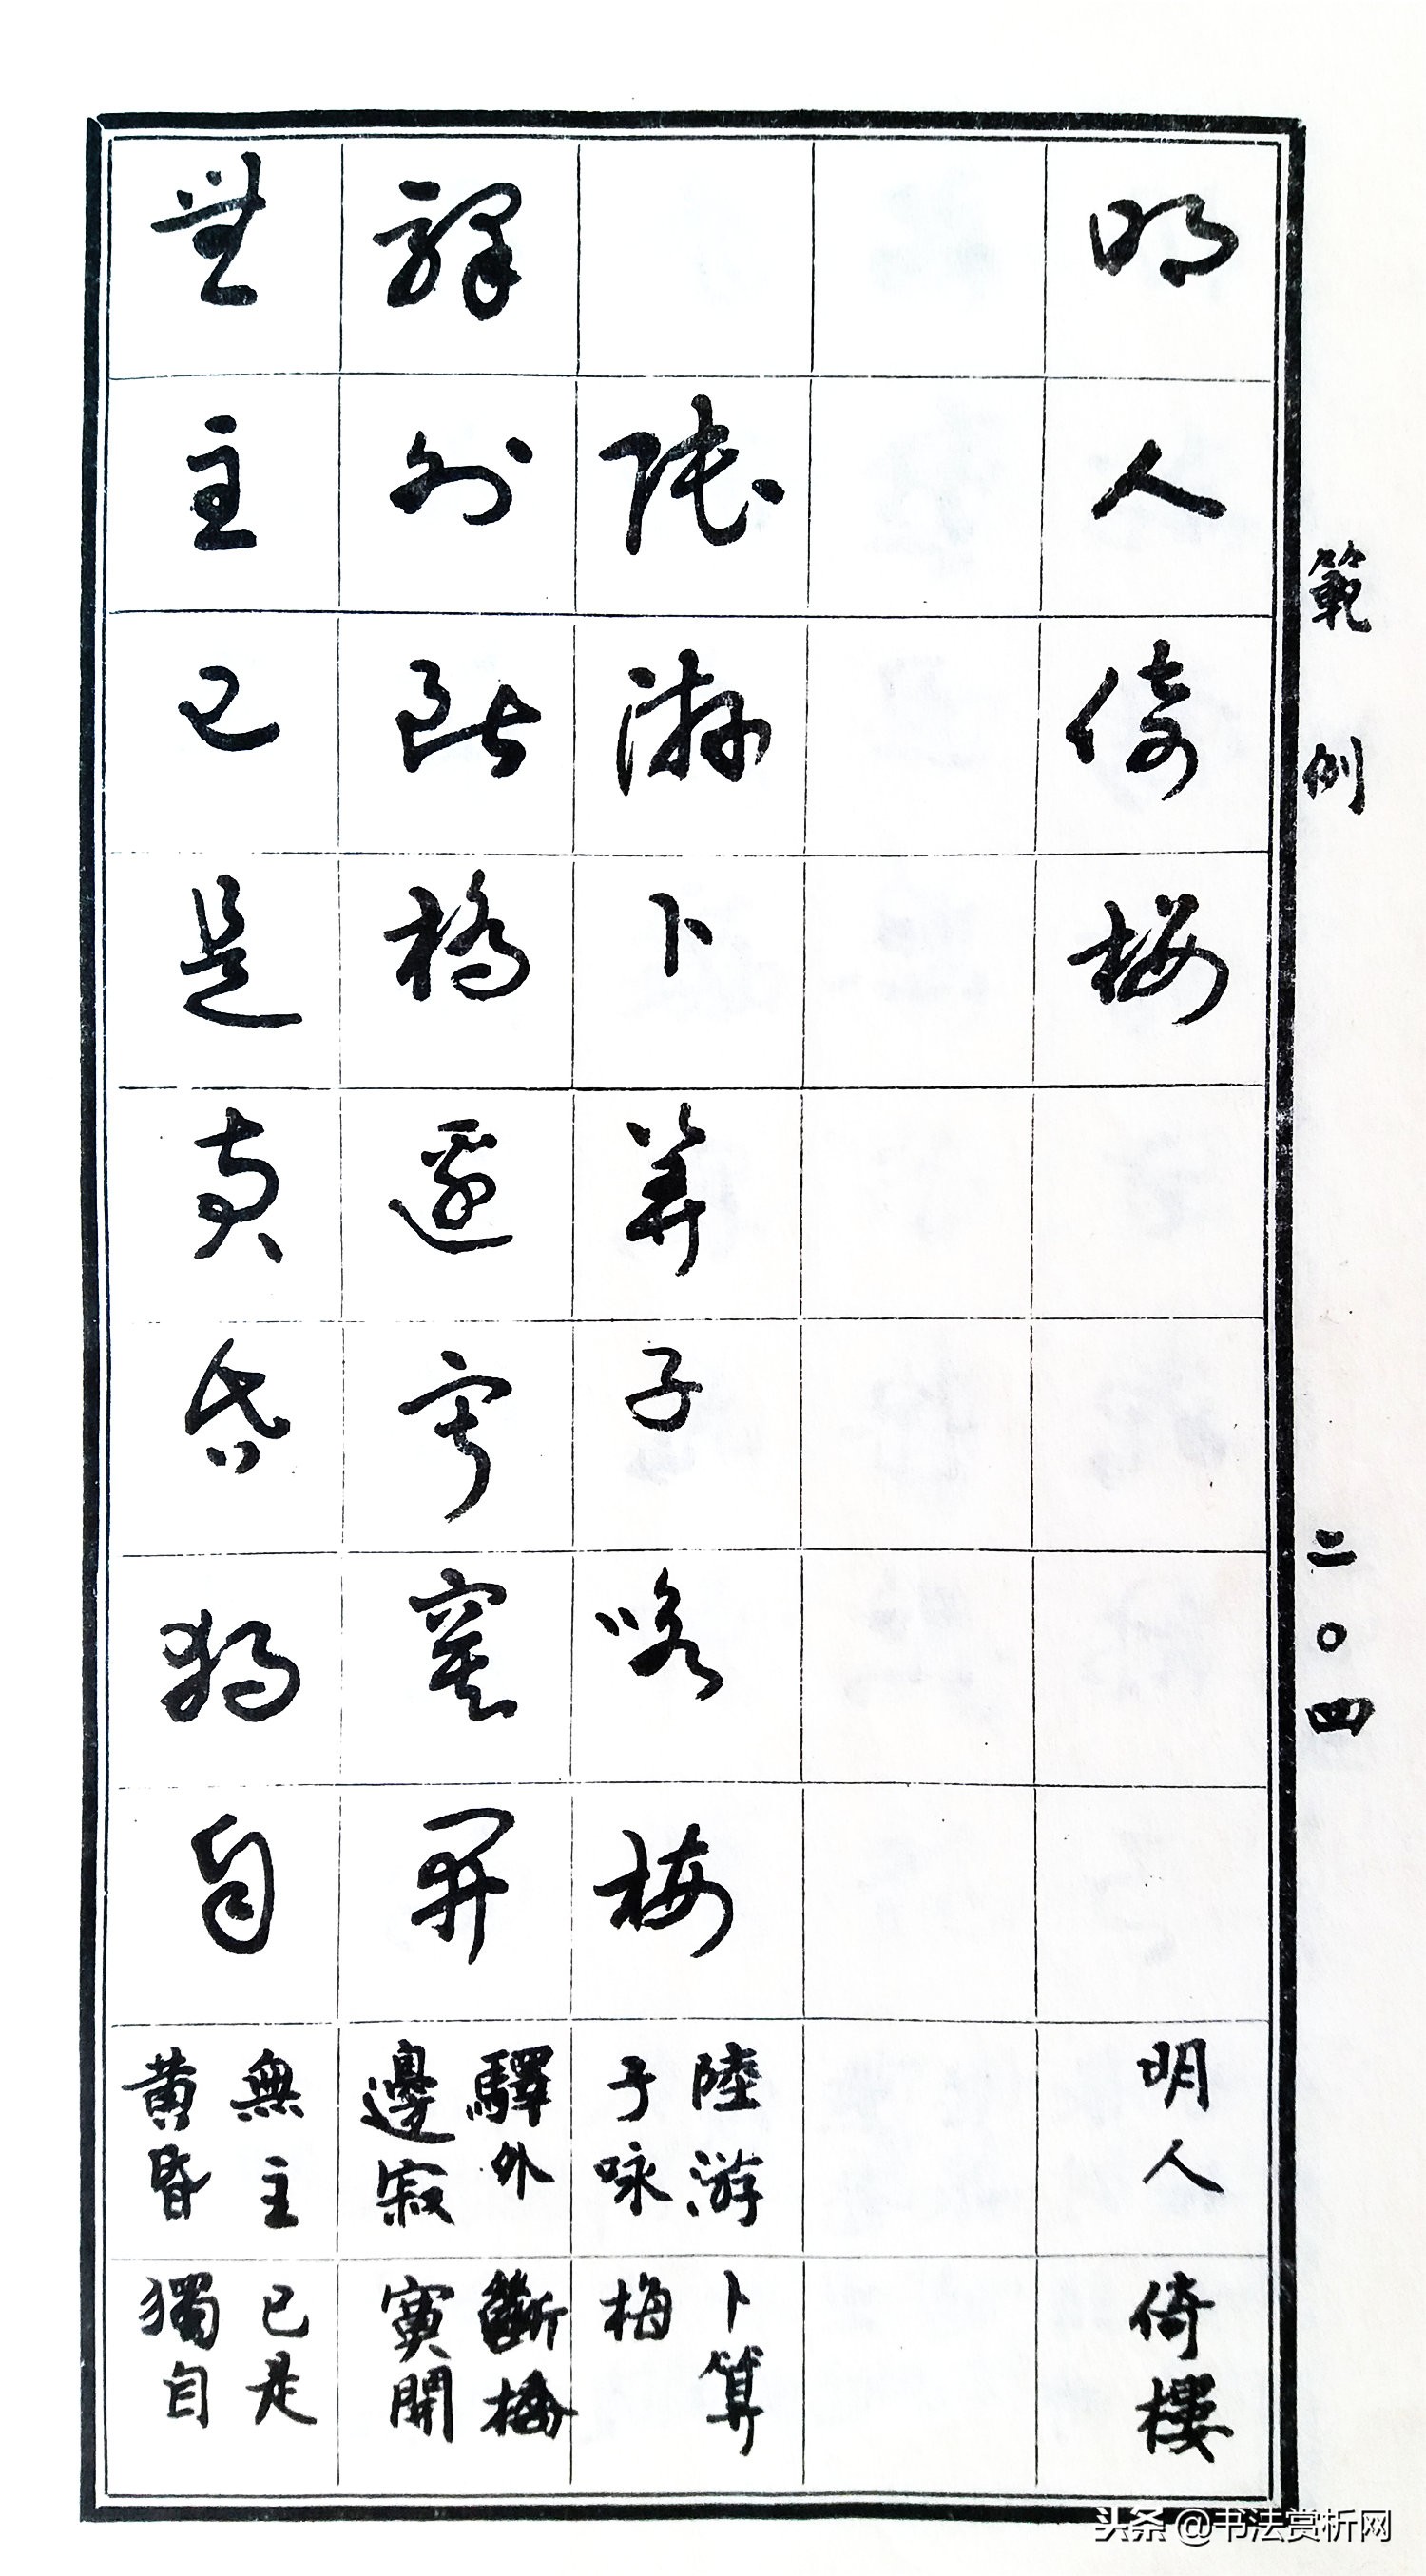 範例
二〇四
明人倚樓
明人倚樓
陸游卜算子咏梅
陸游卜算
子咏梅
驛外斷橋邊寂寞開
驛外斷橋
邊寂寞開
無主已是黄昏獨自
無主已是
黄昏獨自
头条 @书法赏析网